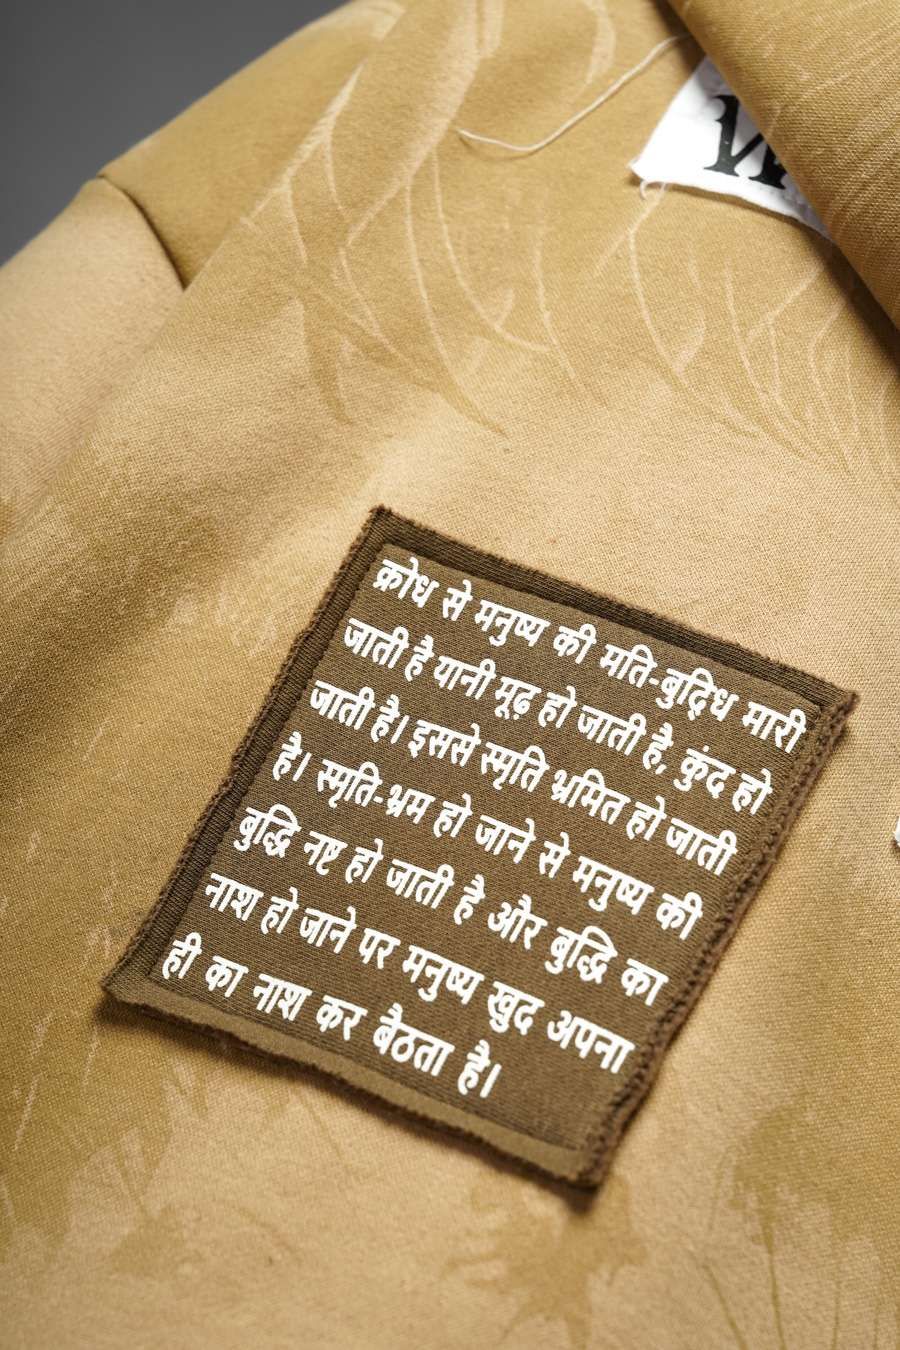 क्रोध से मनुष्य की मति-बुदि्ध मारी
जाती है यानी मूढ़ हो जाती है, कुंद हो
जाती है। इससे स्मृति भ्रमित हो जाती
है। स्मृति-भ्रम हो जाने से मनुष्य की
बुद्धि नष्ट हो जाती है और बुद्धि का
नाश हो जाने पर मनुष्य खुद अपना
ही का नाश कर बैठता है।